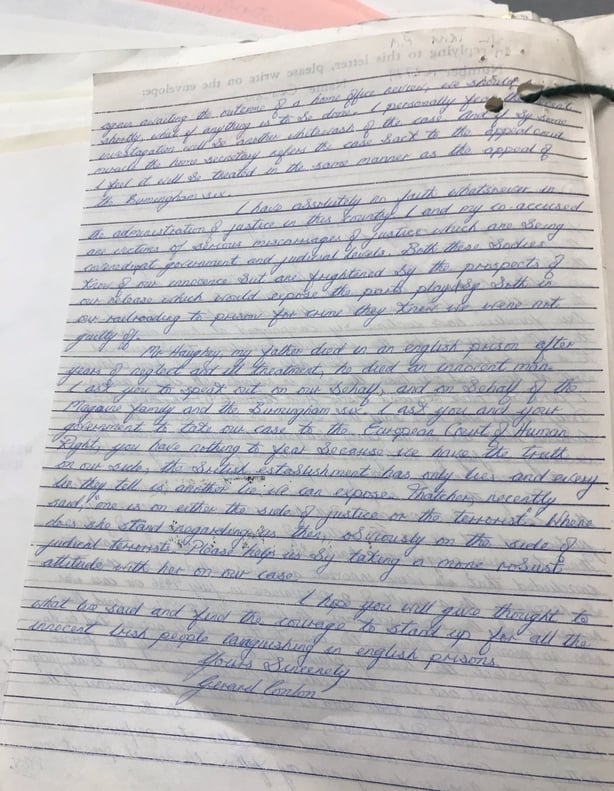 In replying to this letter, please write on the envelope:
Number Name
again awaiting the outcome of a home office review, we should
shortly what if anything is to be done. I personally the
investagation will be another whitewash of the case. And if by some
miracle the home secretary refers the case back to the appeal court
I feel it will be treated in the same manner as the appeal of
the Birmingham six.
I have absolutely no faith whatsoever in
the administration of justice in this country. I and my co-accused
are victims of serious miscarriages of justice which are being
covered government and judicial levels. Both these bodies
know of our innocence but are frightened by the prospects of
our release which would expose the parts played by both in
our railroading to prison for crime they knew we were not
guilty of.
Mr Haughey, my father died in an english prison after
years of neglect and ill treatment, he died an innocent man.
I ask you to speak out on our behalf, and on behalf of the
Maguire family and the Birmingham six. I ask you and your
government to take our case to the European Court of Human
Right, you have nothing to fear because we have the truth
on our side, the British establishment has only lies and every
lie they tell is another lie we can expose. Thatcher recently
said, "one is on either the side of justice or the terrorist". Where
does she stand regarding us then, obviously on the side of
judicial terrorist. Please help us by taking a more robust
attitude with her on our case.
I hope you will give thought to
what I've said and find the courage to stand up for all the
innocent Irish people languishing in english prisons.
Yours Sincerely
Gerard Conlon